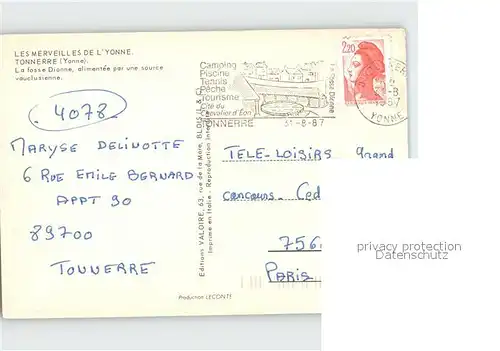 LES MERVEILLES DE L'YONNE
TONNERRE (Yonne).
La fosse Dionne, alimentée par une source
vauclusienne.
4078
MARYSE DELINOTTE
6 RUE EMILE BERNARD
APPT 90
89700
TONNERRE
Editions VALOIRE, 63, rue de la Maie, BLOIS
Imprimé en Italie - Reproduction
Camping
Piscine
Tennis
Pêche
Tourisme
Cité du
Chevalier d'Eon
TONNERRE 31-8-87
La Fosse Dionne
2,20
1987
YONNE
TELE-LOISIRS Grand
concours. Ced
756
PARIS
Production LECONTE
privacy protection
Datenschutz